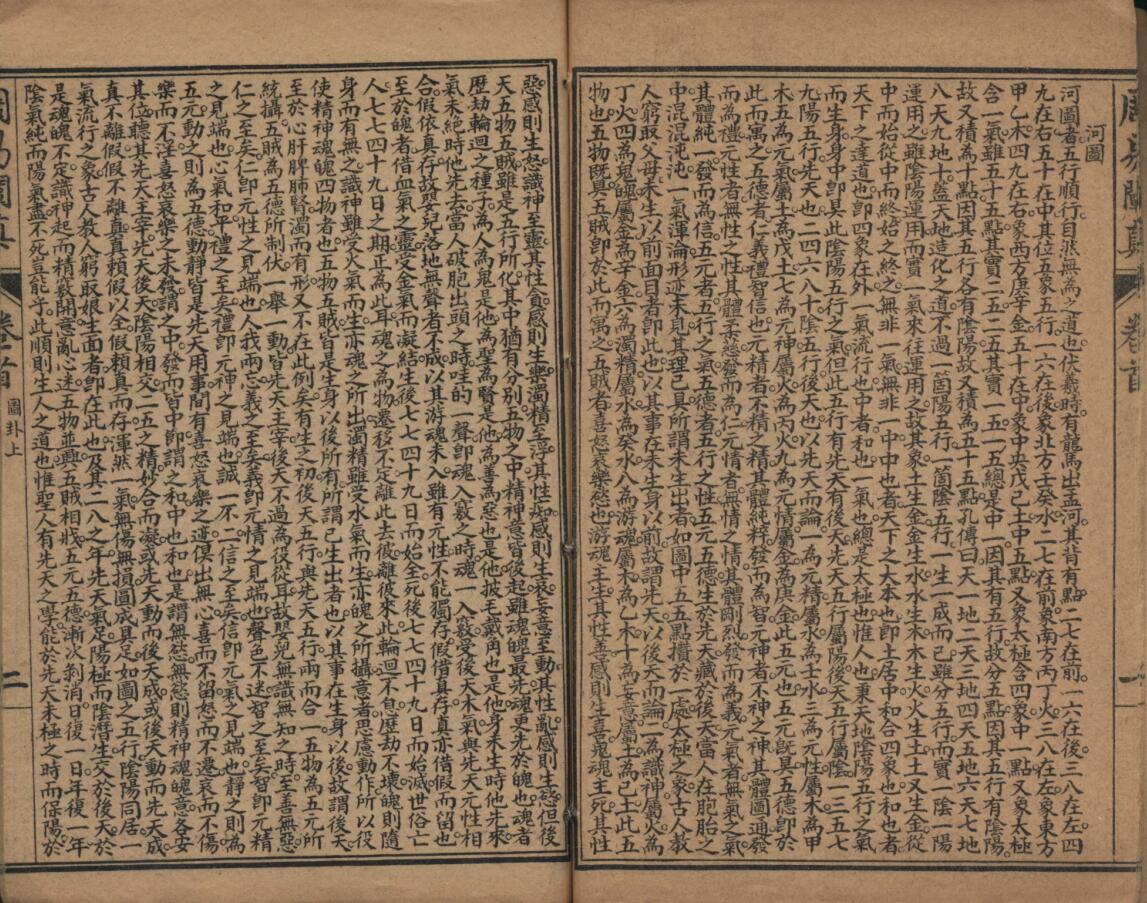 河圖
河圖者五行順行自然無為之道也伏羲時有龍馬出孟河其背有點二七在前一六在後三八在左四
九在右五十在中其位五象五行一六在後象北方壬癸水二七在前象南方丙丁火三八在左象東方
甲乙木四九在右象西方庚辛金五十在中象中央戊己土中五點又象太極含四象中一點又象太極
含一氣雖五十五點其實二五二五其實一五一五總是中一因其有五行故分五點因其五行有陰陽
故又積為十點因其五行各有陰陽故又積為五十五點孔傳曰天一地二天三地四天五地六天七地
八天九地十蓋天地造化之道不過一箇陽五行一箇陰五行一生一成而已雖分五行而實一陰一陽
運用之雖陰陽運用而實一氣來往運用之故其象土生金金生水水生木木生火火生土土又生金從
中而始從中而終始之終之無非一氣無非一中中也者天下之大本也即土居中和合四象也和也者
天下之達道也即四象在外一氣流行也中者和也一氣也總是太極也惟人也秉天地陰陽五行之氣
而生身身中即具此陰陽五行之氣但此五行有先天有後天先天五行屬陽後天五行屬陰一三五七
九陽五行先天也二四六八十陰五行後天也以先天而論一為元精屬水為壬水三為元性屬木為甲
木五為元氣屬土為戊土七為元神屬火為丙火九為元情屬金為庚金此五元也五元既具五德即於
此而寓之五德者仁義禮智信也元精者不精之精其體純粹發而為智元神者不神之神其體圓通發
而為禮元性者無性之性其體柔慈發而為仁元情者無情之情其體剛烈發而為義元氣者無氣之氣
其體純一發而為信五元者五行之氣五德者五行之性五元五德生於先天藏於後天當人在胞胎之
中混混沌沌一氣渾淪形迹未見其理已具所謂未生出者如圖中五五點攢於一處太極之象古人教
人窮取父母未生以前面目者即此也以其事在未生身以前故謂先天以後天而論二為識神屬火為
丁火四為鬼魄屬金為辛金六為濁精屬水為癸水八為游魂屬木為乙木十為妄意屬土為己土此五
物也五物既具五賊即於此而寓之五賊者喜怒哀樂慾也游魂主生其性善感則生喜鬼魄主死其性
卷首
一
惡感則生怒識神至靈其性貪感則生樂濁精至浮其性痴感則生哀妄意至動其性亂感則生慾但後
天五物五賊雖是五行所化其中猶有分別五物之中精神意皆後起雖魂魄最先魂更先於魄也魂者
歷劫輪迴之種子為人為鬼是他為聖為賢是他為善為惡也是他披毛戴角也是他身未生時他先來
氣未絕時他先去當人破胞出頭之時哇的一聲即魂入竅之時魂一入竅受後天木氣與先天元性相
合假依真存故嬰兒落地無聲者不成以其游魂未入雖有元性不能獨存假借真存真亦借假而留也
至於魄者借血氣之靈受金氣而凝結生後七七四十九日而始全死後七七四十九日而始滅世俗亡
人七七四十九日之期正為此耳魂之為物遷移不定離此去彼離彼來此輪迴不息歷劫不壞魄則隨
身而有無之識神雖受火氣而生亦魂之所出濁精雖受水氣而生亦魄之所攝意者思慮動作所以役
使精神魂魄四物者也五物五賊皆是生身以後所有所謂已生出者也以其事在生身以後故謂後天
至於心肝脾肺腎濁而有形又不在此例矣有生之初後天五行與先天五行兩而合一五物為五元所
統攝五賊為五德所制伏一舉一動皆先天主宰後天不過為役從耳故嬰兒無識無知之時至善無惡
仁之至矣仁即元性之見端也人我兩忘義之至矣義即元情之見端也聲色不迷智之至矣智即元精
之見端也心氣和平禮之至矣禮即元神之見端也誠一不二信之至矣信即元氣之見端也靜則為
五元動之則為五德動靜皆是先天用事間有喜怒哀樂之迹俱出無心喜而不留怒而不遷哀而不傷
樂而不淫喜怒哀樂之未發謂之中發而皆中節謂之和中也和也是謂無慾無慾則精神魂魄意各安
其位聽其先天主宰先天後天陰陽相交二五之精妙合而凝或先天動而後天成或後天動而先天成
真不離假假不離真真賴假以全假賴真而存渾然一氣無傷無損圓成具足如圖之五行陰陽同居一
氣流行之象古人教人窮取娘生面者即在此也及其二八之年先天氣足陽極而陰潛生交於後天於
是魂魄不定識神起而精竅開意亂心迷五物並興五賊相戕五元五德漸次剝消日復一日年復一年
陰氣純而陽氣盡不死豈能乎此順則生人之道也惟聖人有先天之學能於先天未極之時而保陽於
周易闡真
卷首
圖卦上
二